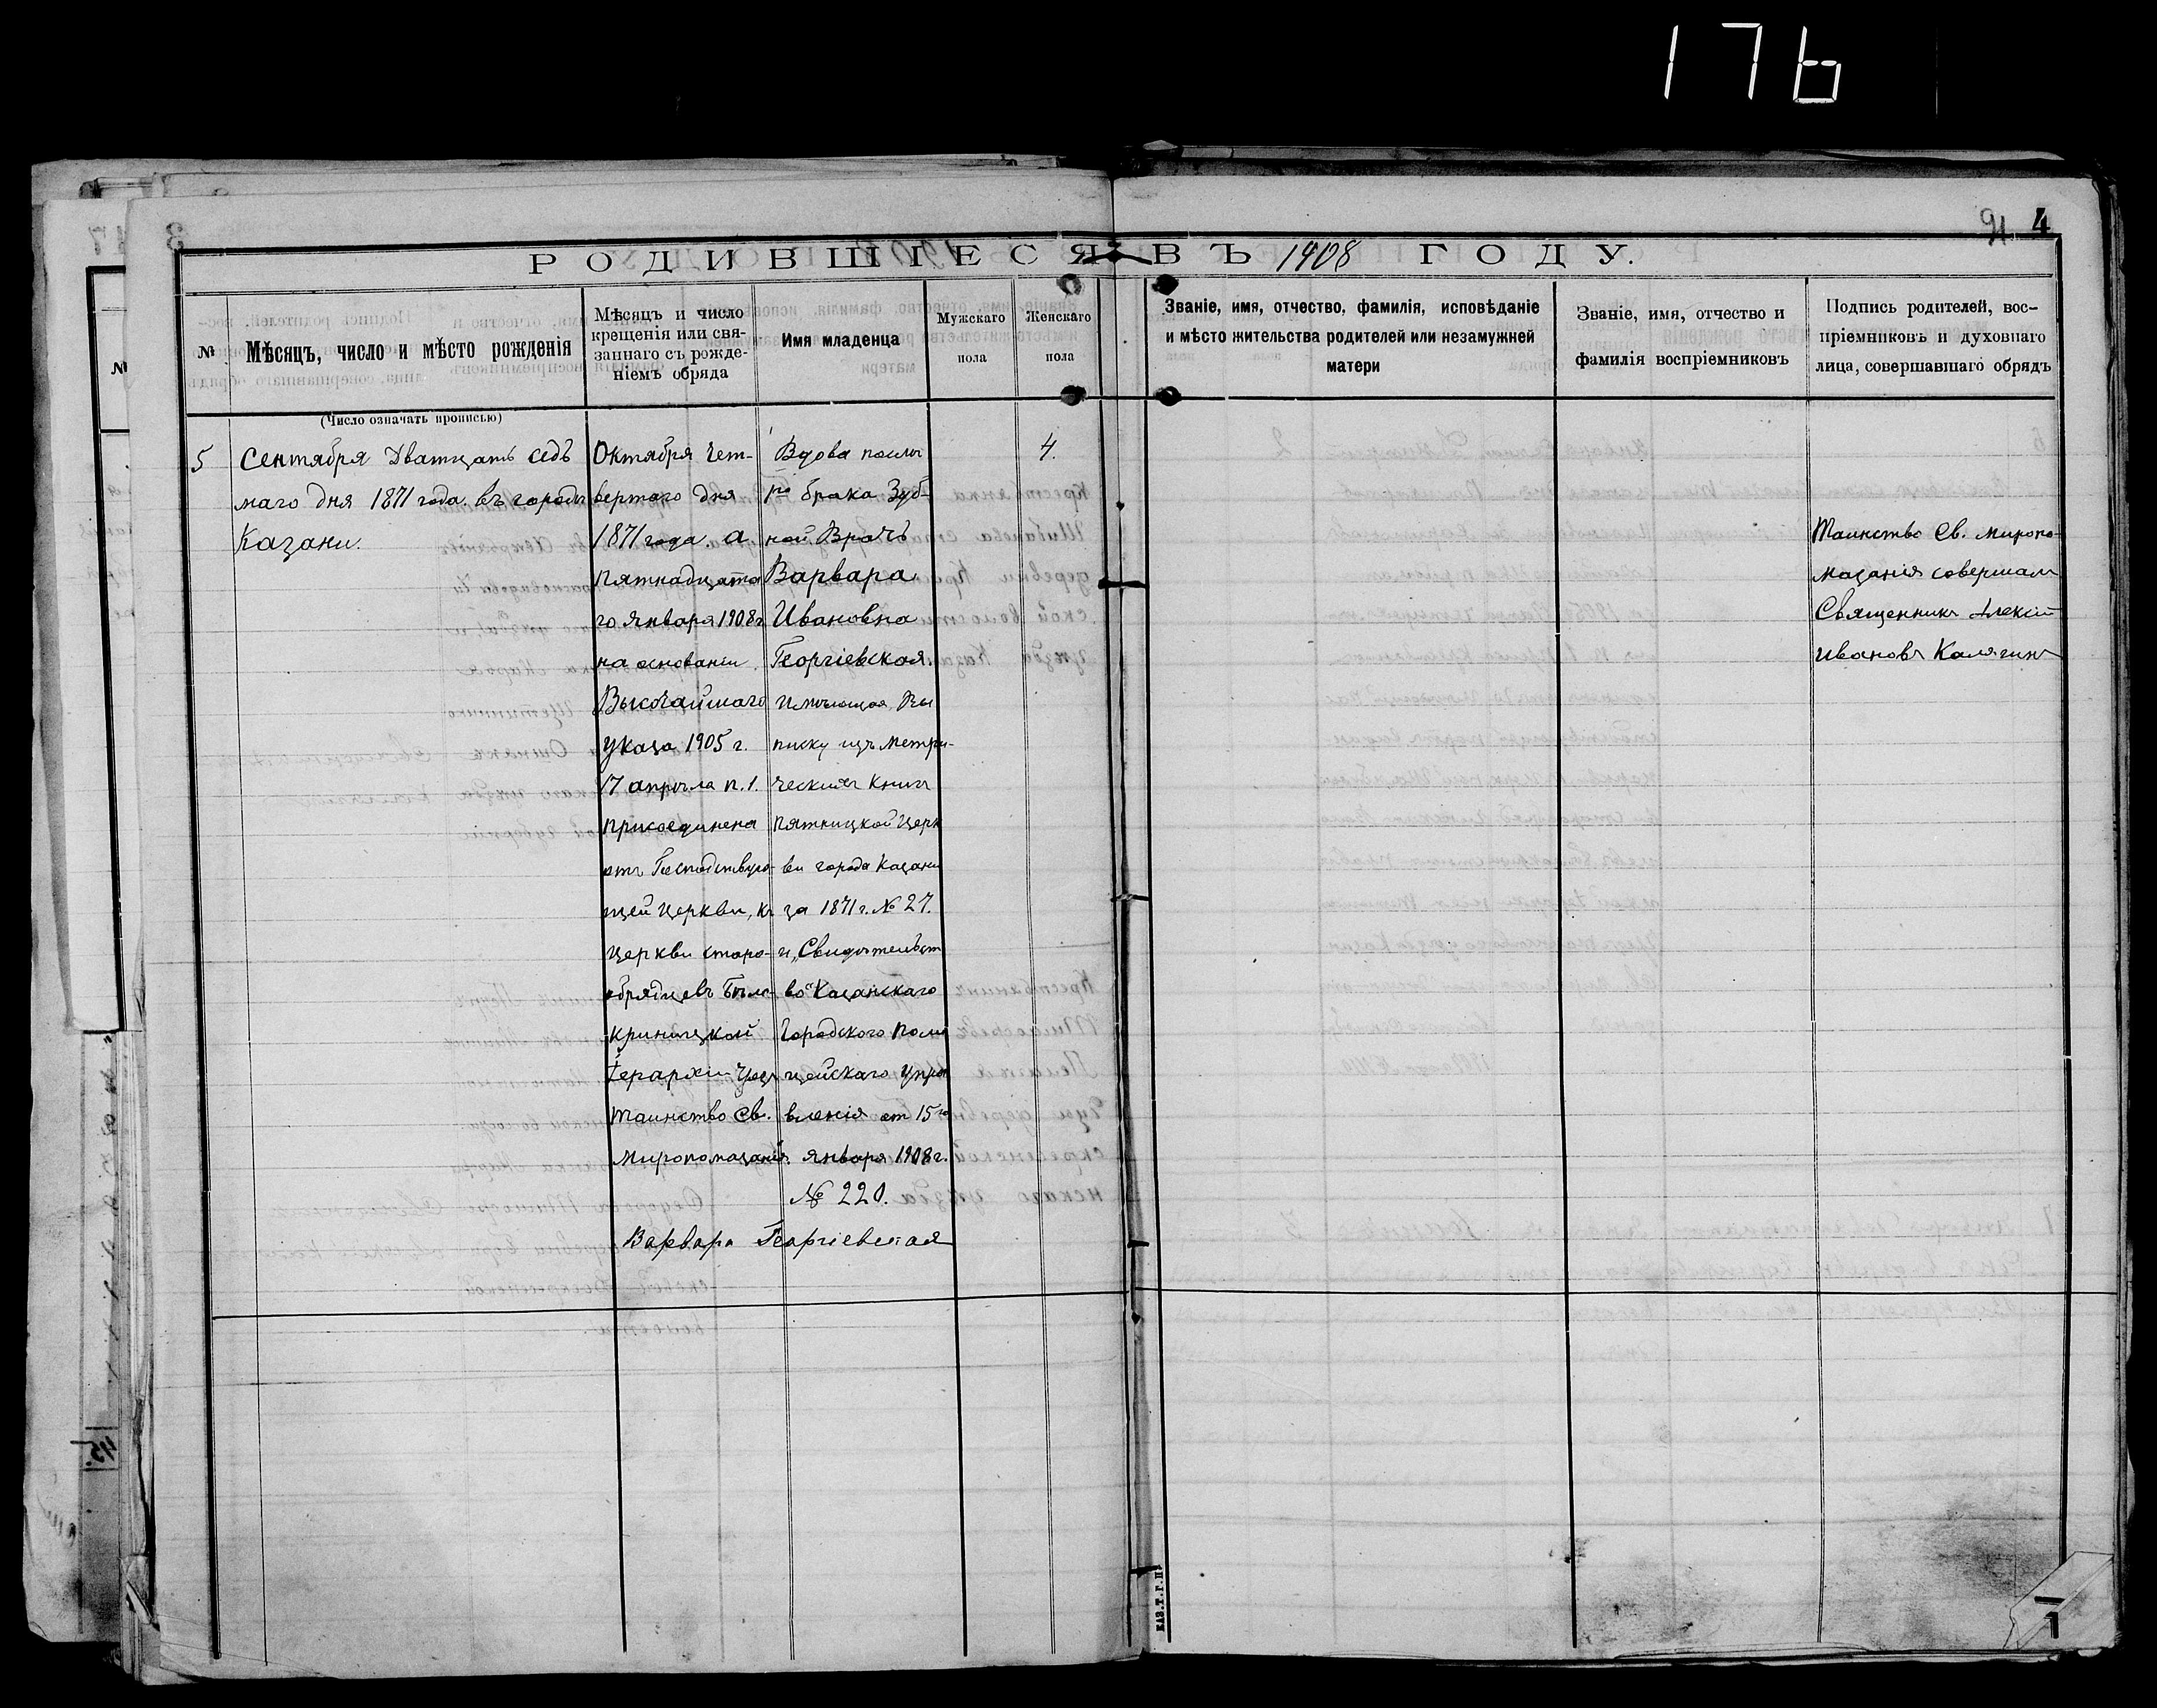 176
91 4
РОДИВШІЕСЯ ВЪ 1908 ГОДУ.
№
Мѣсяцъ, число и мѣсто рожденія
Мѣсяцъ и число
крещенія или свя-
заннаго съ рожде-
ніемъ обряда
Имя младенца
Мужскаго
пола
Женскаго
пола
Званіе, имя, отчество, фамилія, исповѣданіе
и мѣсто жительства родителей или незамужней
матери
Званіе, имя, отчество и
фамилія воспріемниковъ
Подпись родителей, вос-
пріемниковъ и духовнаго
лица, совершавшаго обрядъ
(Число означать прописью)
5
Сентября Дватцать седь
маго дня 1871 года. въ городѣ
Казани.
Октября Чет-
вертаго дня
1871 года. а.
пятнадцата
го января 1908 г.
на основаніи
Высочайшаго
указа 1905 г.
17 апрѣля п. 1.
присоединена
отъ Господствую-
щей Церкви, къ
Церкви старо-
обрядцевъ Бѣло-
криницкой
Іерархіи Чрез
Таинство Св.
Миропомазанія.
Вдова послѣ
1го брака Зуб-
ной Врачъ
Варвара
Ивановна
Георгіевская.
Имѣющая Вы
писку изъ Метри-
ческихъ Книгъ
Пятницкой Церк
ви города Казани
за 1871 г. № 27.
и, „Свидѣтельст
во" Казанскаго
Городского Поли
цейскаго Упра
вленія от 15го
января 1908 г.
№ 220.
Варвара Георгіевская
4.
Таинство Св. Миропо-
мазанія совершалъ
Священникъ Алексій
Ивановъ Калягинъ
КАЗ. Т. Г. П.